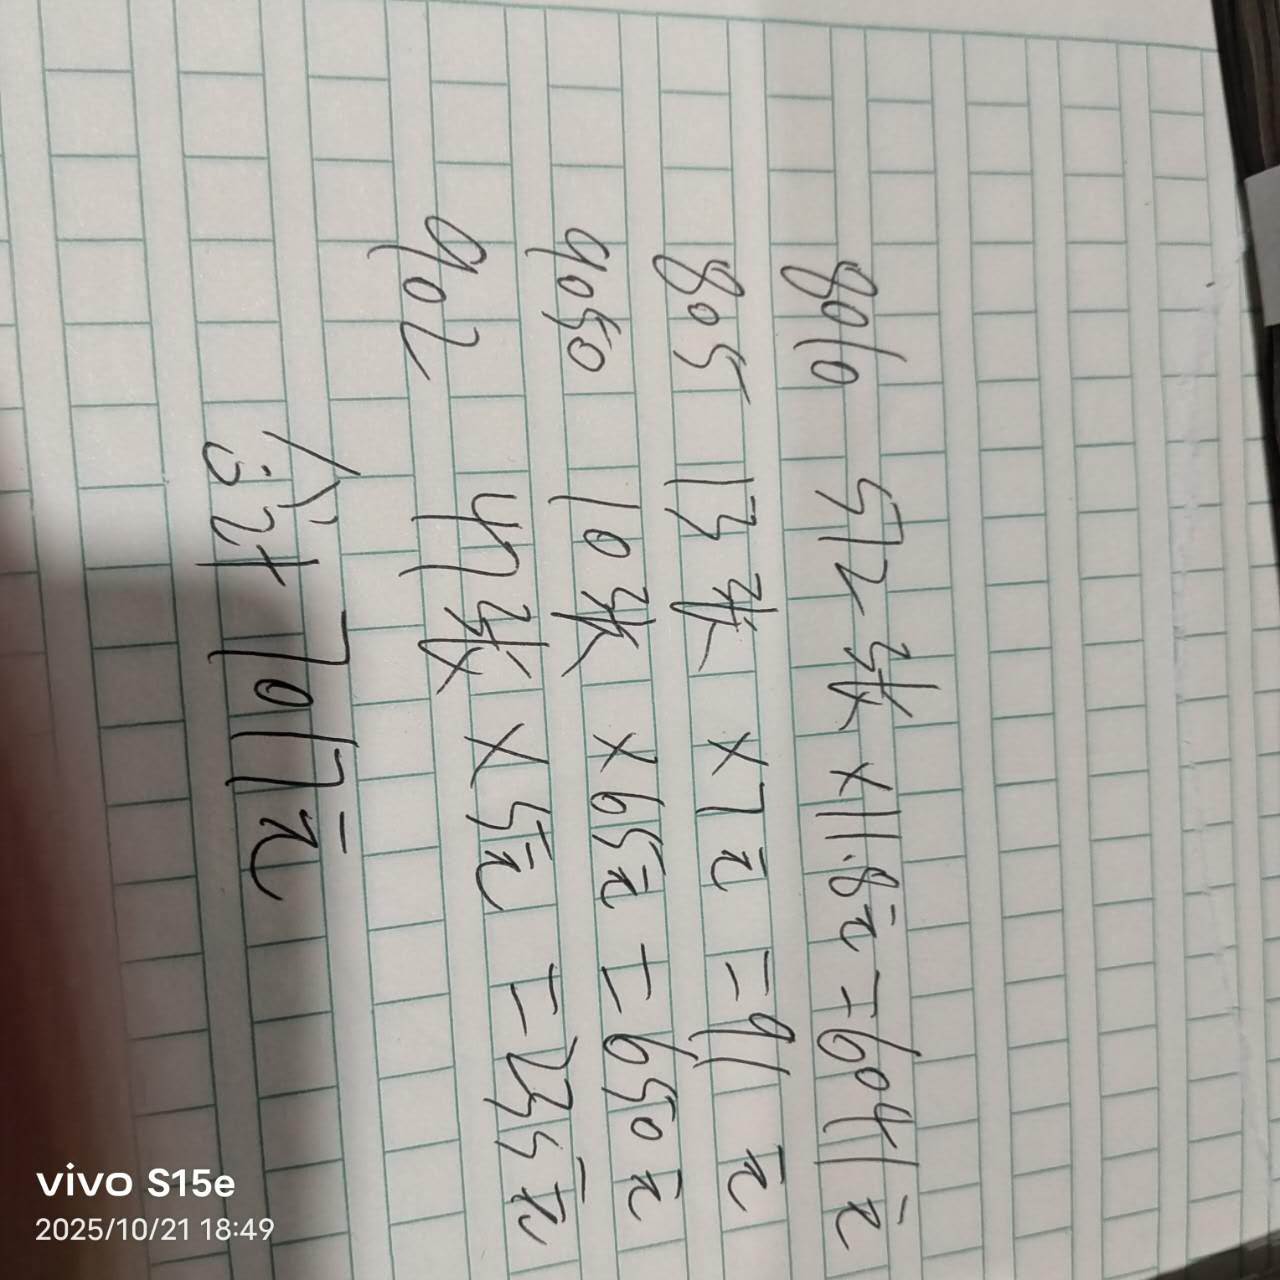 8010 512张×11.8元=6041元
805 13张×7元=91元
9050 10张×65元=650元
902 47张×5元=235元
合计7017元
vivo S15e
2025/10/21 18:49